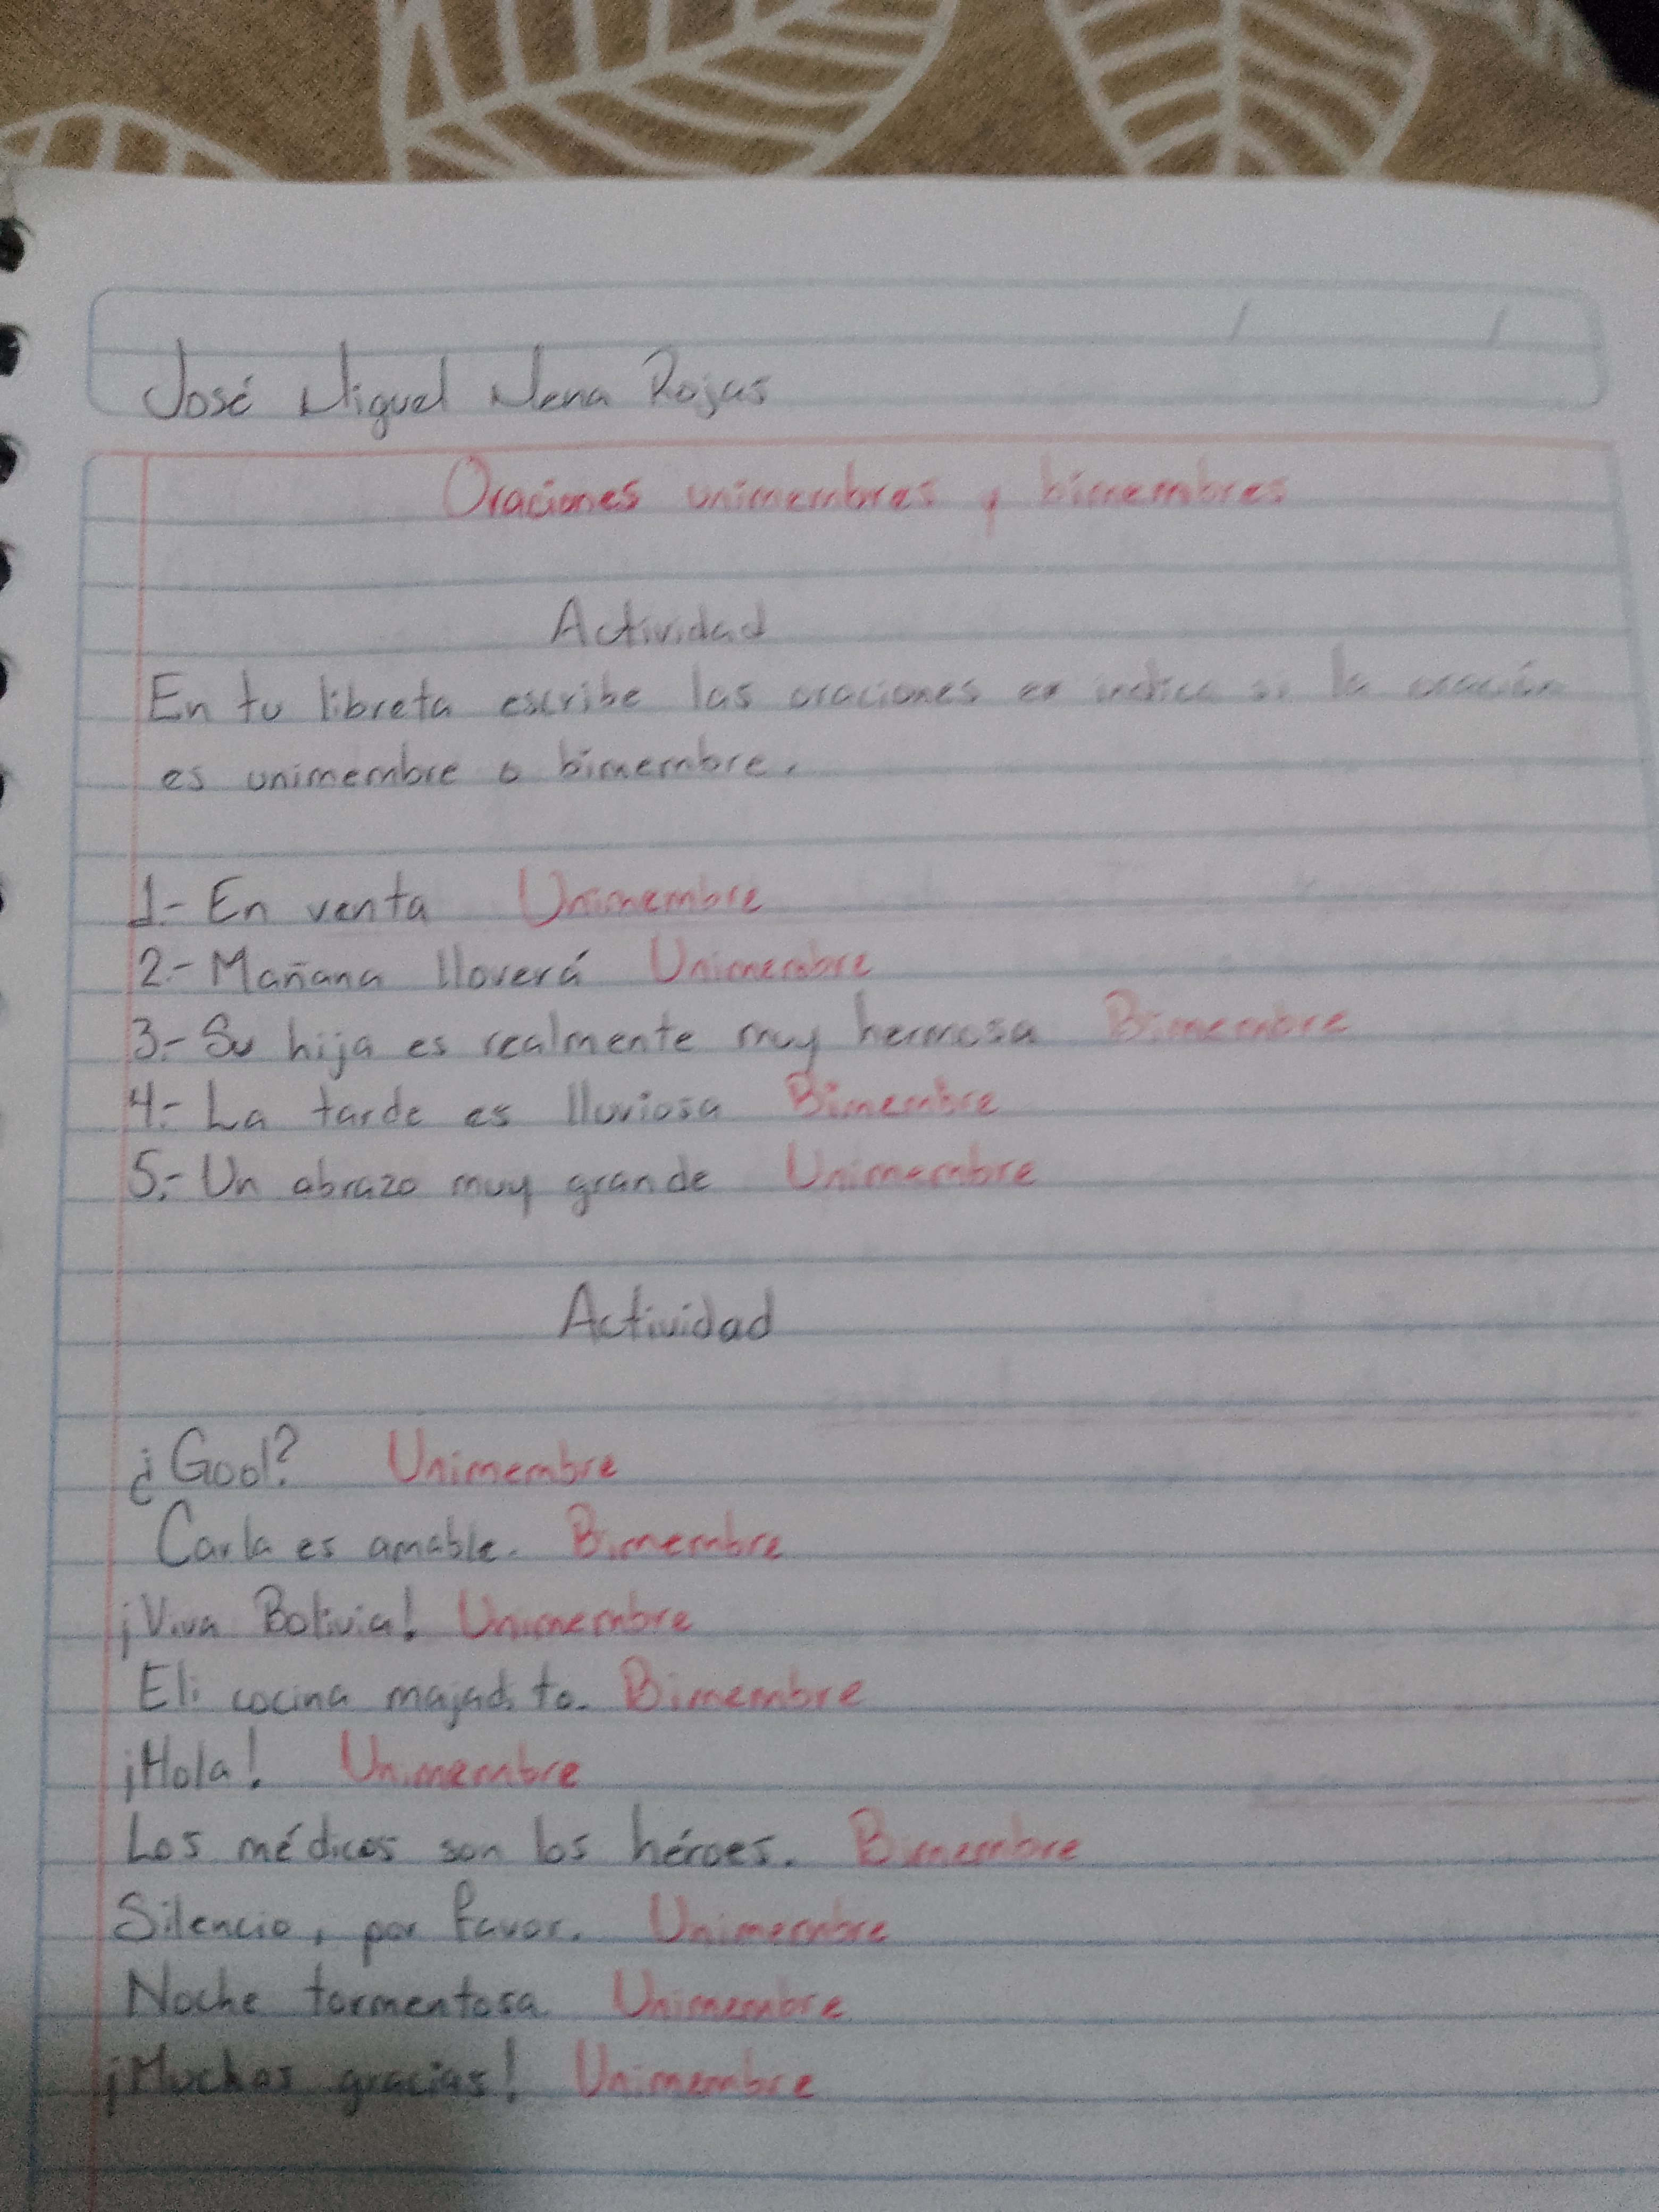 José Miguel Mena Rojas
Oraciones unimembres y bimembres
Actividad
En tu libreta escribe las oraciones e indica si la oración
es unimembre o bimembre.
1.- En venta Unimembre
2.- Mañana lloverá Unimembre
3.- Su hija es realmente muy hermosa Bimembre
4.- La tarde es lluviosa Bimembre
5.- Un abrazo muy grande Unimembre
Actividad
¿Gool? Unimembre
Carla es amable. Bimembre
¡Viva Bolivia! Unimembre
Eli cocina majadito. Bimembre
¡Hola! Unimembre
Los médicos son los héroes. Bimembre
Silencio, por favor. Unimembre
Noche tormentosa. Unimembre
¡Muchas gracias! Unimembre